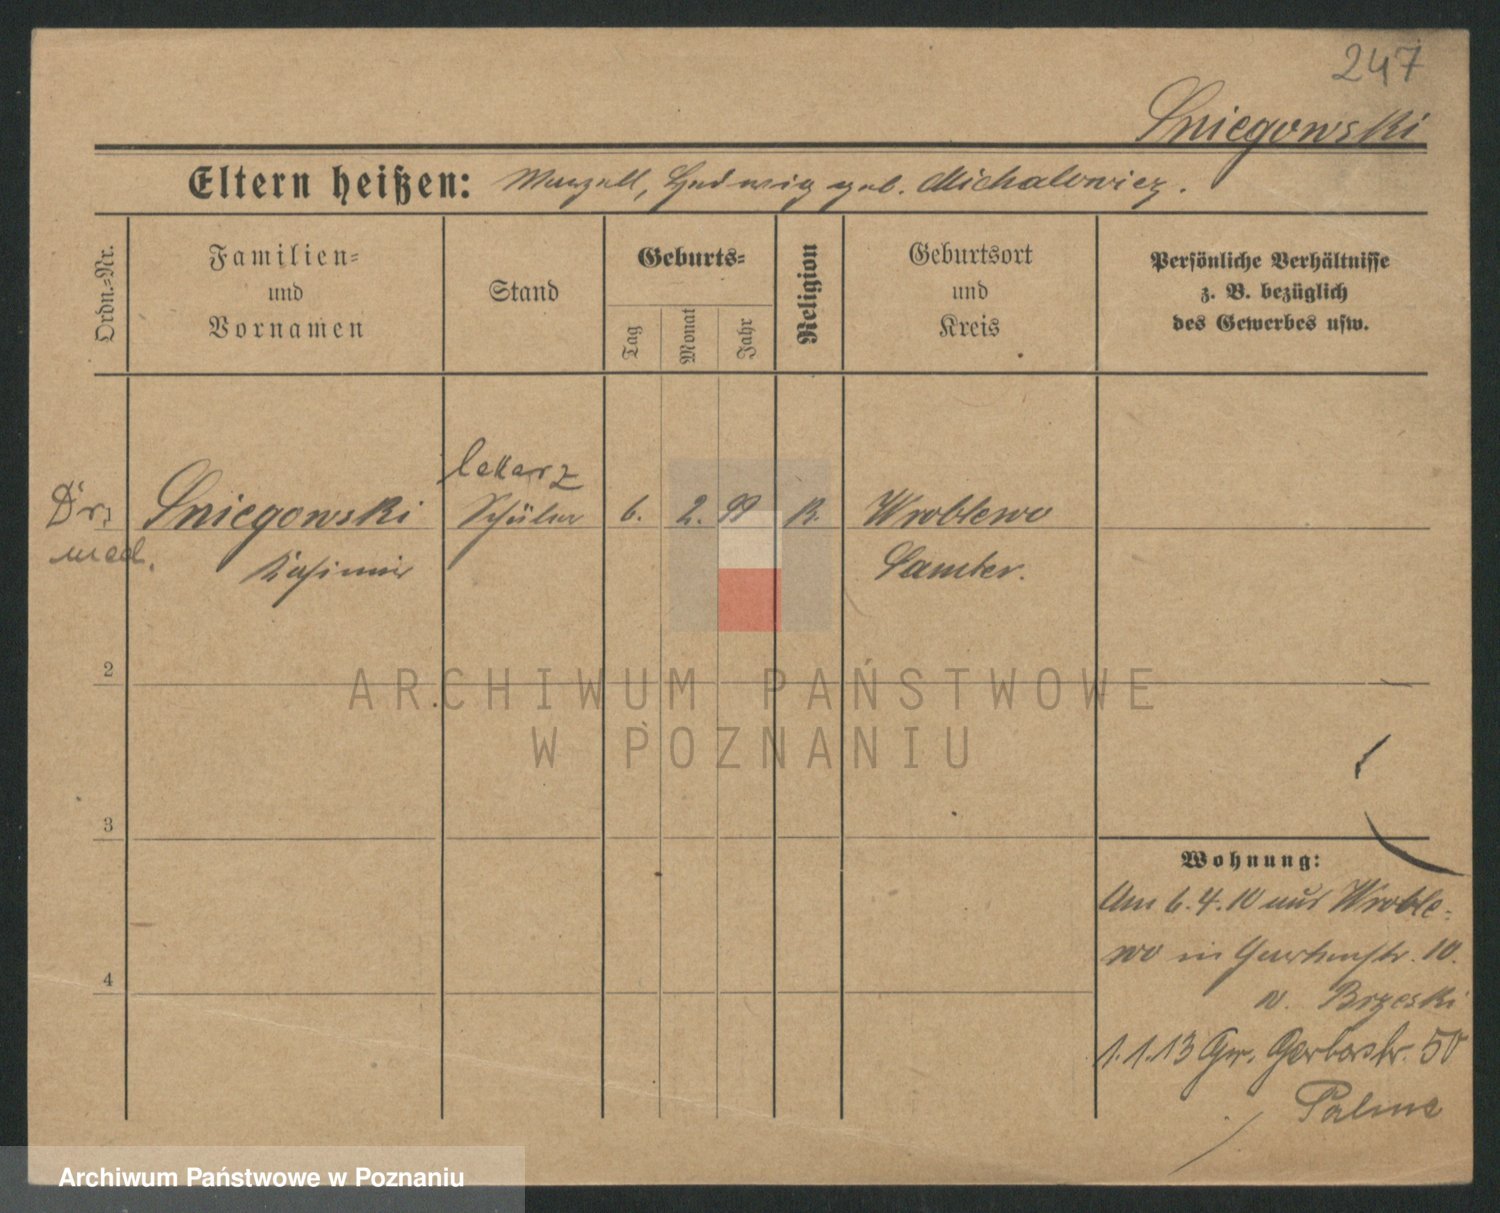 247
Sniegowski
Eltern heißen: Marzell, Hedwig geb. Michalowicz.
Ordn.=Nr.
Familien=
und
Vornamen
Stand
Geburts=
Tag
Monat
Jahr
Religion
Geburtsort
und
Kreis
Persönliche Verhältnisse
z. B. bezüglich
des Gewerbes usw.
lekarz
Dr. Sniegowski Schüler 6. 2. 99 k. Wroblewo
med. Kasimir Samter.
2
ARCHIWUM PAŃSTWOWE
W POZNANIU
3
Wohnung:
Am 6.4.10 aus Wroble-
wo in Gartenstr. 10.
b. Brzeski
4
1.1.13 Gr. Gerberstr. 50
Palme
Archiwum Państwowe w Poznaniu